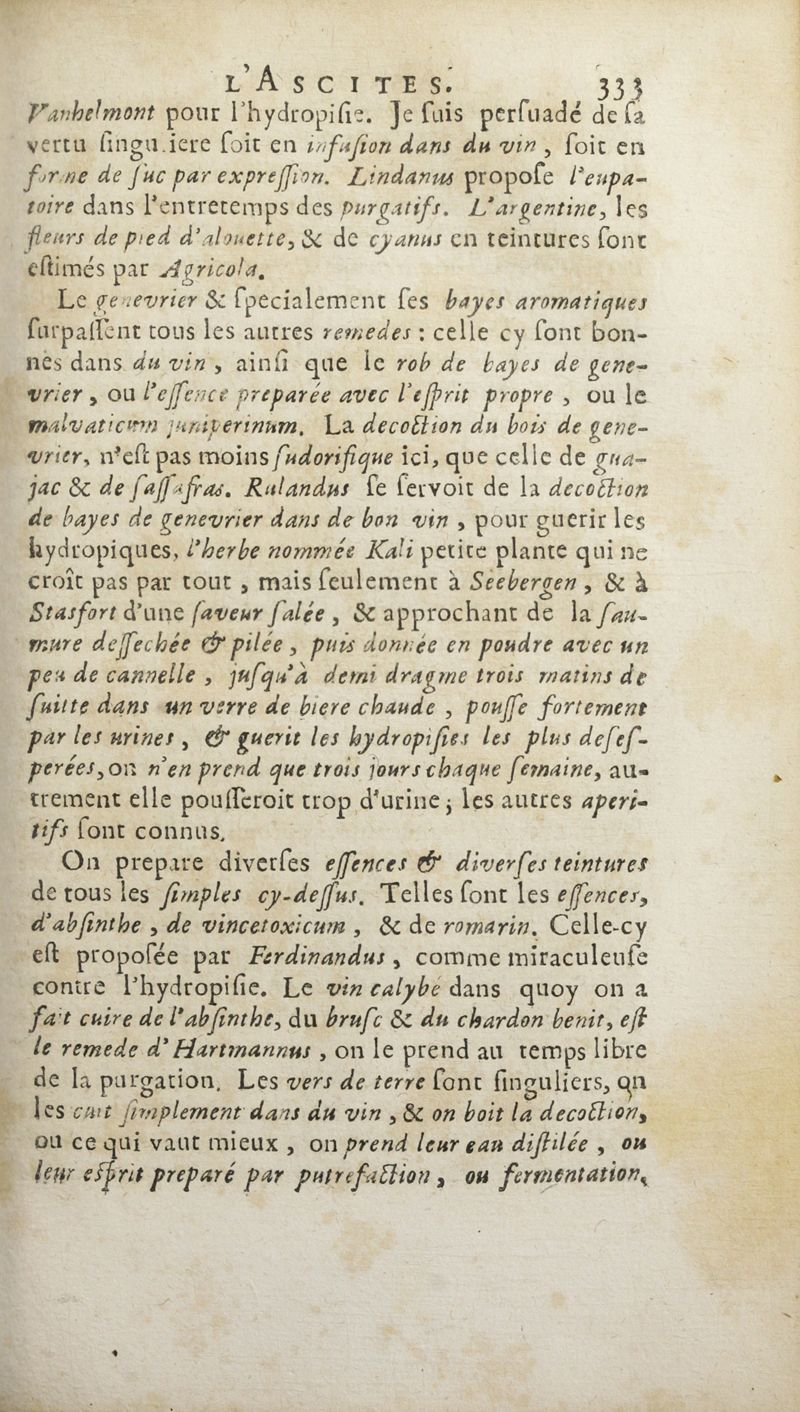 L'ASCITES. 333
Vanhelmont pour l'hydropisie. Je suis persuadé de sa
vertu singuliere soit en infusion dans du vin, soit en
forme de suc par expression. Lindanus propose l'eupa-
toire dans l'entretemps des purgatifs. L'argentine, les
fleurs de pied d'alouette, & de cyanus en teintures sont
estimés par Agricola.
Le genevrier & specialement ses bayes aromatiques
surpassent tous les autres remedes : celle cy sont bon-
nes dans du vin, ainsi que le rob de bayes de gene-
vrier, ou l'essence preparée avec l'esprit propre, ou le
malvaticum juniperinum. La decoction du bois de gene-
vrier, n'est pas moins sudorifique ici, que celle de gua-
jac & de sassafras. Rulandus se servoit de la decoction
de bayes de genevrier dans de bon vin, pour guerir les
hydropiques, l'herbe nommée Kali petite plante qui ne
croît pas par tout, mais seulement à Seebergen, & à
Stasfort d'une saveur salée, & approchant de la sau-
mure dessechée & pilée, puis donnée en poudre avec un
peu de cannelle, jusqu'à demi dragme trois matins de
suitte dans un verre de biere chaude, pousse fortement
par les urines, & guerit les hydropisies les plus deses-
perées, on n'en prend que trois jours chaque semaine, au-
trement elle pousseroit trop d'urine; les autres aperi-
tifs sont connus.
On prepare diverses essences & diverses teintures
de tous les simples cy-dessus. Telles sont les essences,
d'absinthe, de vincetoxicum, & de romarin. Celle-cy
est proposée par Ferdinandus, comme miraculeuse
contre l'hydropisie. Le vin calybé dans quoy on a
fait cuire de l'absinthe, du brusc & du chardon benit, est
le remede d'Hartmannus, on le prend au temps libre
de la purgation. Les vers de terre sont singuliers, on
les cuit simplement dans du vin, & on boit la decoction,
ou ce qui vaut mieux, on prend leur eau distilée, ou
leur esprit preparé par putrefaction, ou fermentation,